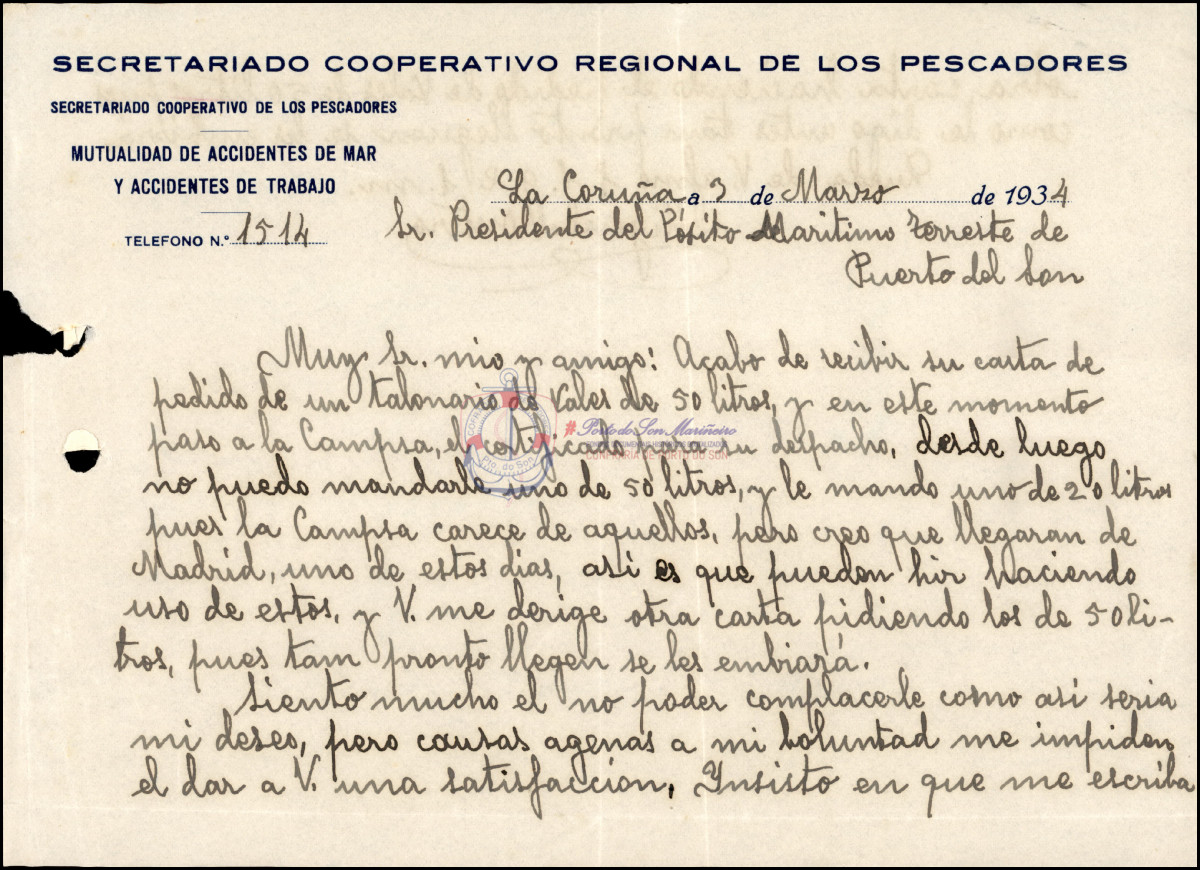 SECRETARIADO COOPERATIVO REGIONAL DE LOS PESCADORES
SECRETARIADO COOPERATIVO DE LOS PESCADORES
MUTUALIDAD DE ACCIDENTES DE MAR
Y ACCIDENTES DE TRABAJO
TELEFONO N.º 1514
La Coruña a 3 de Marzo de 1934
Sr. Presidente del Pósito Maritimo Terreste de
Puerto del Son
Muy Sr. mio y amigo: Acabo de recibir su carta de
pedido de un talonario de Vales de 50 litros, y en este momento
paso a la Campsa, el para su despacho, desde luego
no puedo mandarle uno de 50 litros, y le mando uno de 20 litros
pues la Campsa carece de aquellos, pero creo que llegaran de
Madrid, uno de estos dias, asi es que pueden hir haciendo
uso de estos, y V. me derige otra carta pidiendo los de 50 li-
tros, pues tam pronto llegen se les embiará.
Siento mucho el no poder complacerle como asi seria
mi deseo, pero causas agenas a mi boluntad me impiden
el dar a V. una satisfaccion, Insisto en que me escriba
#Porto do Son Mariñeiro
CONFRARÍA DE PORTO DO SON
Pto. do Son